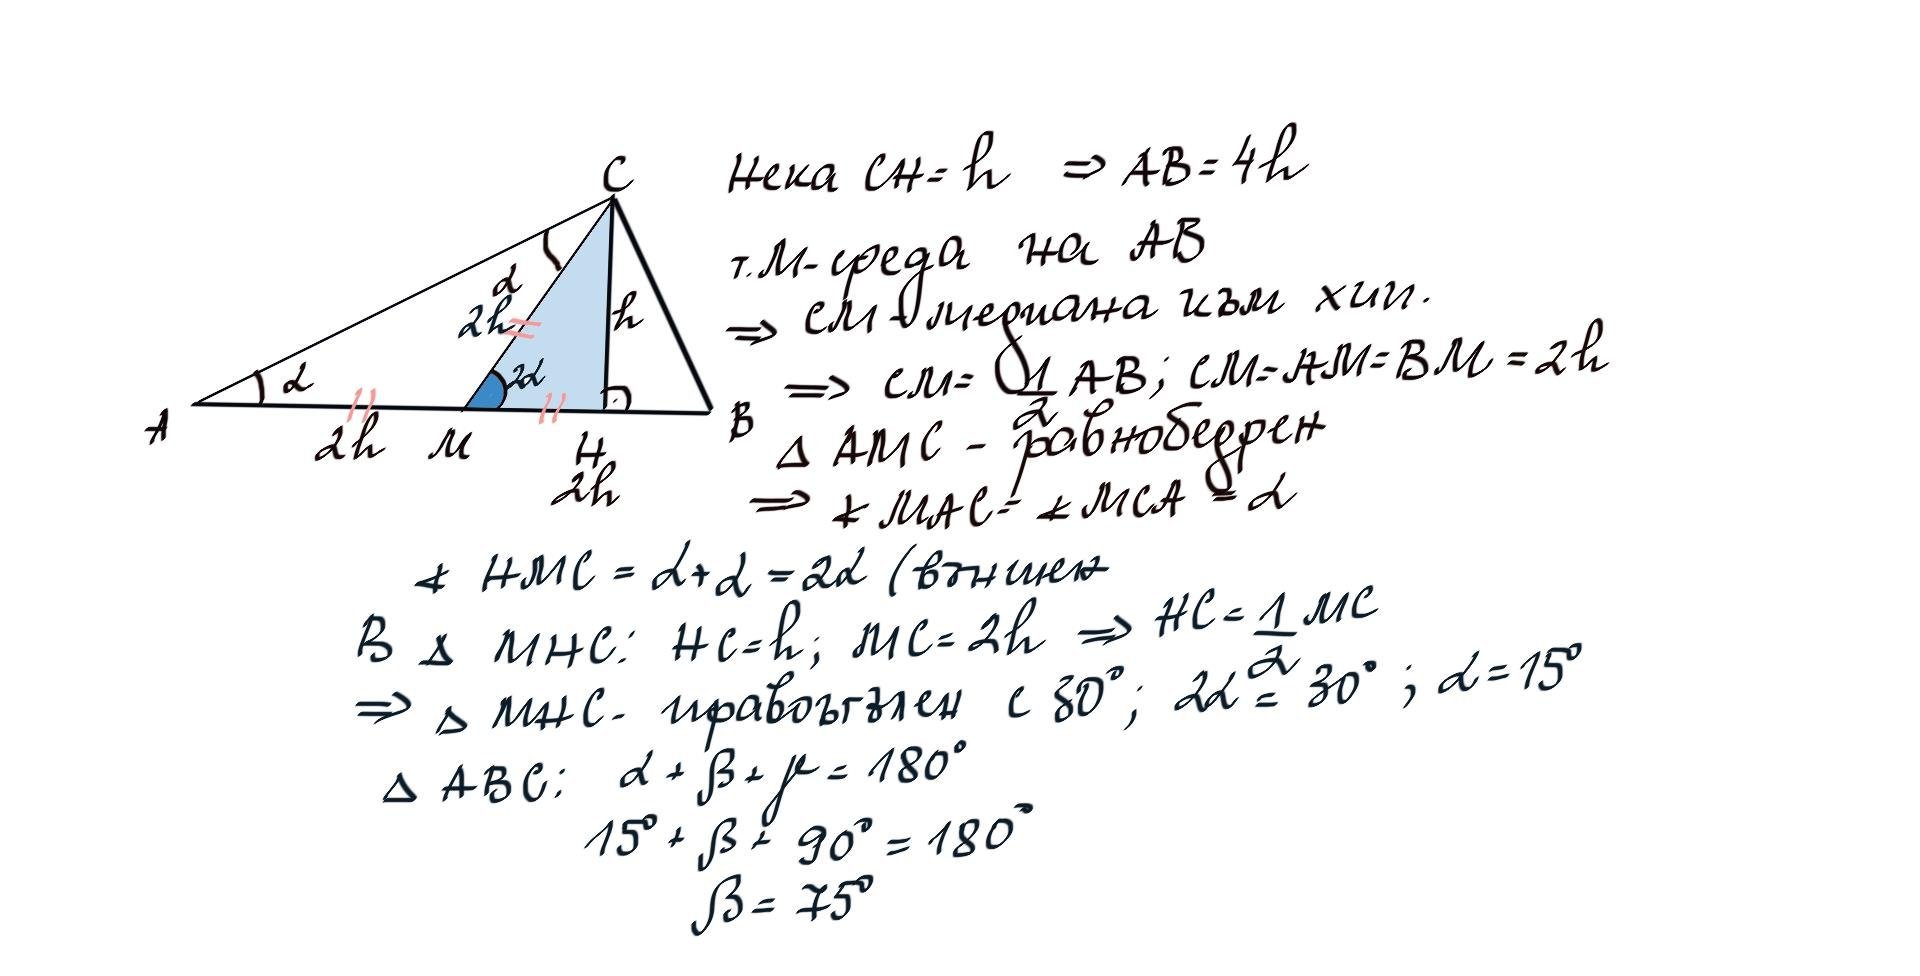 C
Нека CH = h ⇒ AB = 4h
т. M - среда на AB
⇒ CM - медиана към хип.
⇒ CM = 1/2 AB; CM = AM = BM = 2h
Δ AMC - равнобедрен
⇒ ∢ MAC = ∢ MCA = α
α
2h
h
α
2α
A
2h
M
H
B
2h
∢ HMC = α + α = 2α (външен
В Δ MHC: HC = h; MC = 2h ⇒ HC = 1/2 MC
⇒ Δ MHC - правоъгълен с 30°; 2α = 30°; α = 15°
Δ ABC: α + β + γ = 180°
15° + β + 90° = 180°
β = 75°